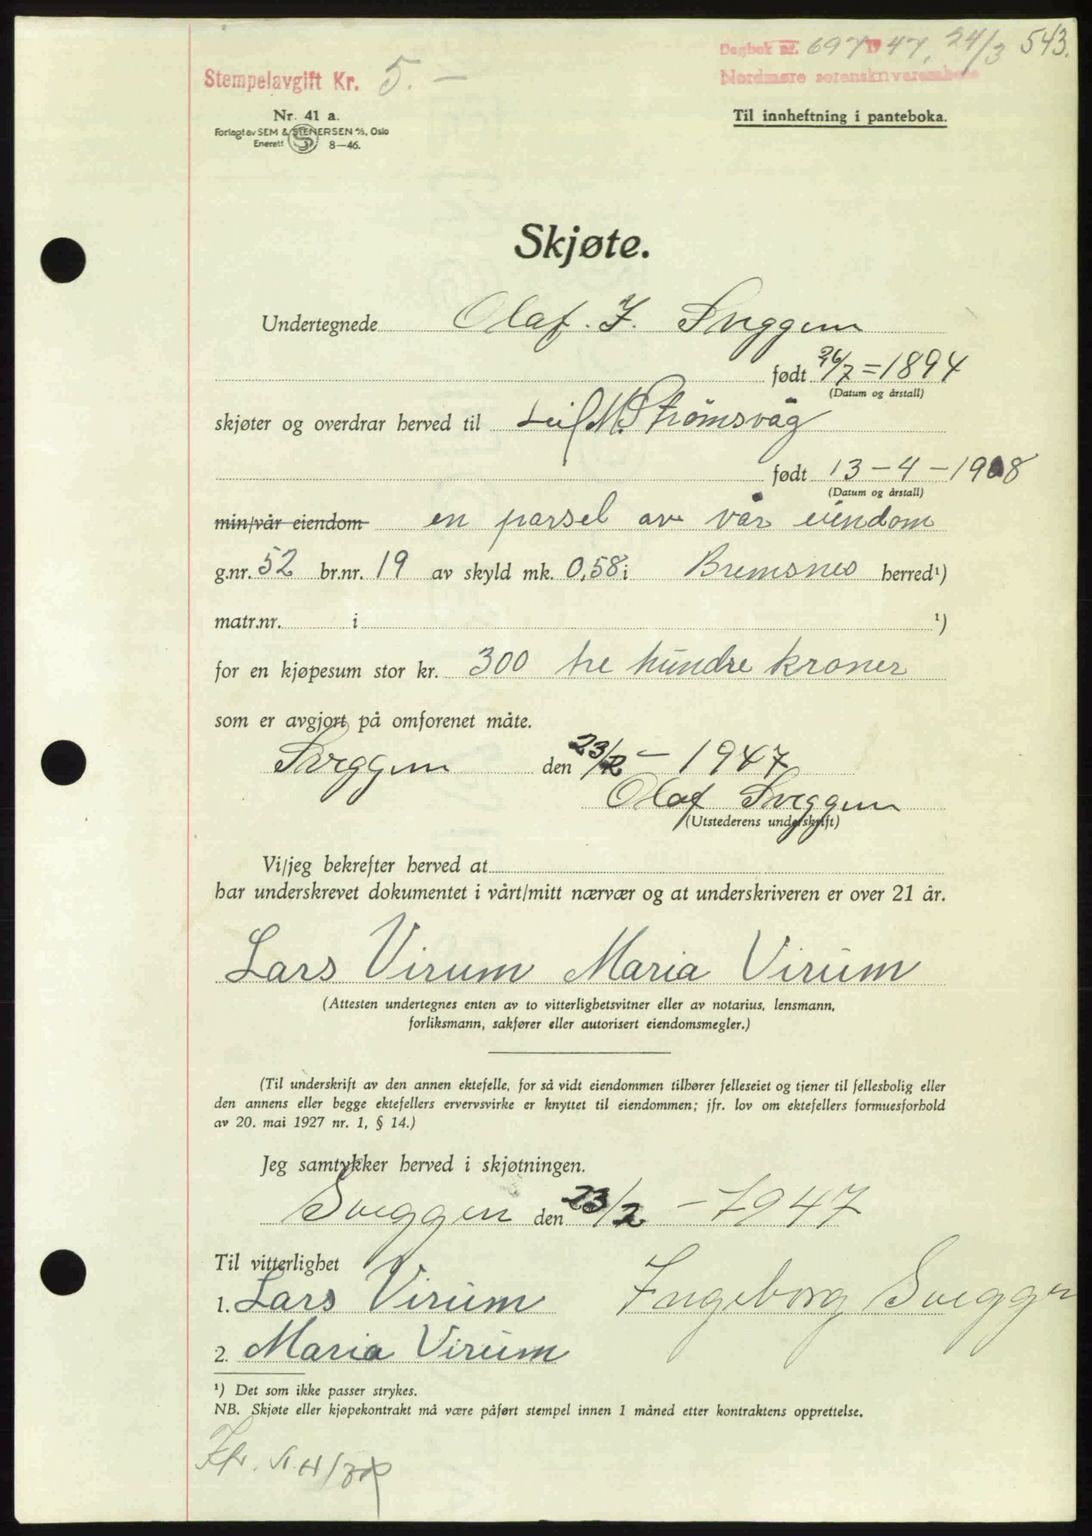 Dagbok nr. 697 1947, 24/3 543.
Stempelavgift Kr. 5. –
Nordmøre sorenskriverembete
Nr. 41 a.
Forlagt av SEM & STENERSEN A/S, Oslo
Enerett 8—46.
Til innheftning i panteboka.
Skjøte.
Undertegnede Olaf. I. Sveggen
født 26/7 = 1894
(Datum og årstall)
skjøter og overdrar herved til Leif M. Strømsvåg
født 13 – 4 – 1908
(Datum og årstall)
min/vår eiendom en parsel av vår eiendom
g.nr. 52 br.nr. 19 av skyld mk. 0,58 i Bremsnes herred¹)
matr.nr. i ¹)
for en kjøpesum stor kr. 300 tre hundre kroner
som er avgjort på omforenet måte.
Sveggen den 23/2 – 1947
Olaf Sveggen
(Utstederens underskrift)
Vi/jeg bekrefter herved at
har underskrevet dokumentet i vårt/mitt nærvær og at underskriveren er over 21 år.
Lars Virum Maria Virum
(Attesten undertegnes enten av to vitterlighetsvitner eller av notarius, lensmann,
forliksmann, sakfører eller autorisert eiendomsmegler.)
(Til underskrift av den annen ektefelle, for så vidt eiendommen tilhører felleseiet og tjener til fellesbolig eller
den annens eller begge ektefellers ervervsvirke er knyttet til eiendommen; jfr. lov om ektefellers formuesforhold
av 20. mai 1927 nr. 1, § 14.)
Jeg samtykker herved i skjøtningen.
Sveggen den 23/2 – 1947
Til vitterlighet
1. Lars Virum Ingeborg Sveggen
2. Maria Virum
¹) Det som ikke passer strykes.
NB. Skjøte eller kjøpekontrakt må være påført stempel innen 1 måned etter kontraktens opprettelse.